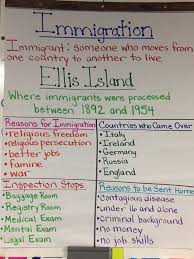 Immigration
Immigrant: someone who moves from
one country to another to live
Ellis Island
Where immigrants were processed
between 1892 and 1954
Reasons for Immigration
• religious freedom
• religious persecution
• better jobs
• famine
• war
Countries who Came Over
• Italy
• Ireland
• Germany
• Russia
• England
Inspection Stops
• Baggage Room
• Registry Room
• Medical Exam
• Mental Exam
• Legal Exam
Reasons to be Sent Home
• contagious disease
• under 16 and alone
• criminal background
• no money
• no job skills